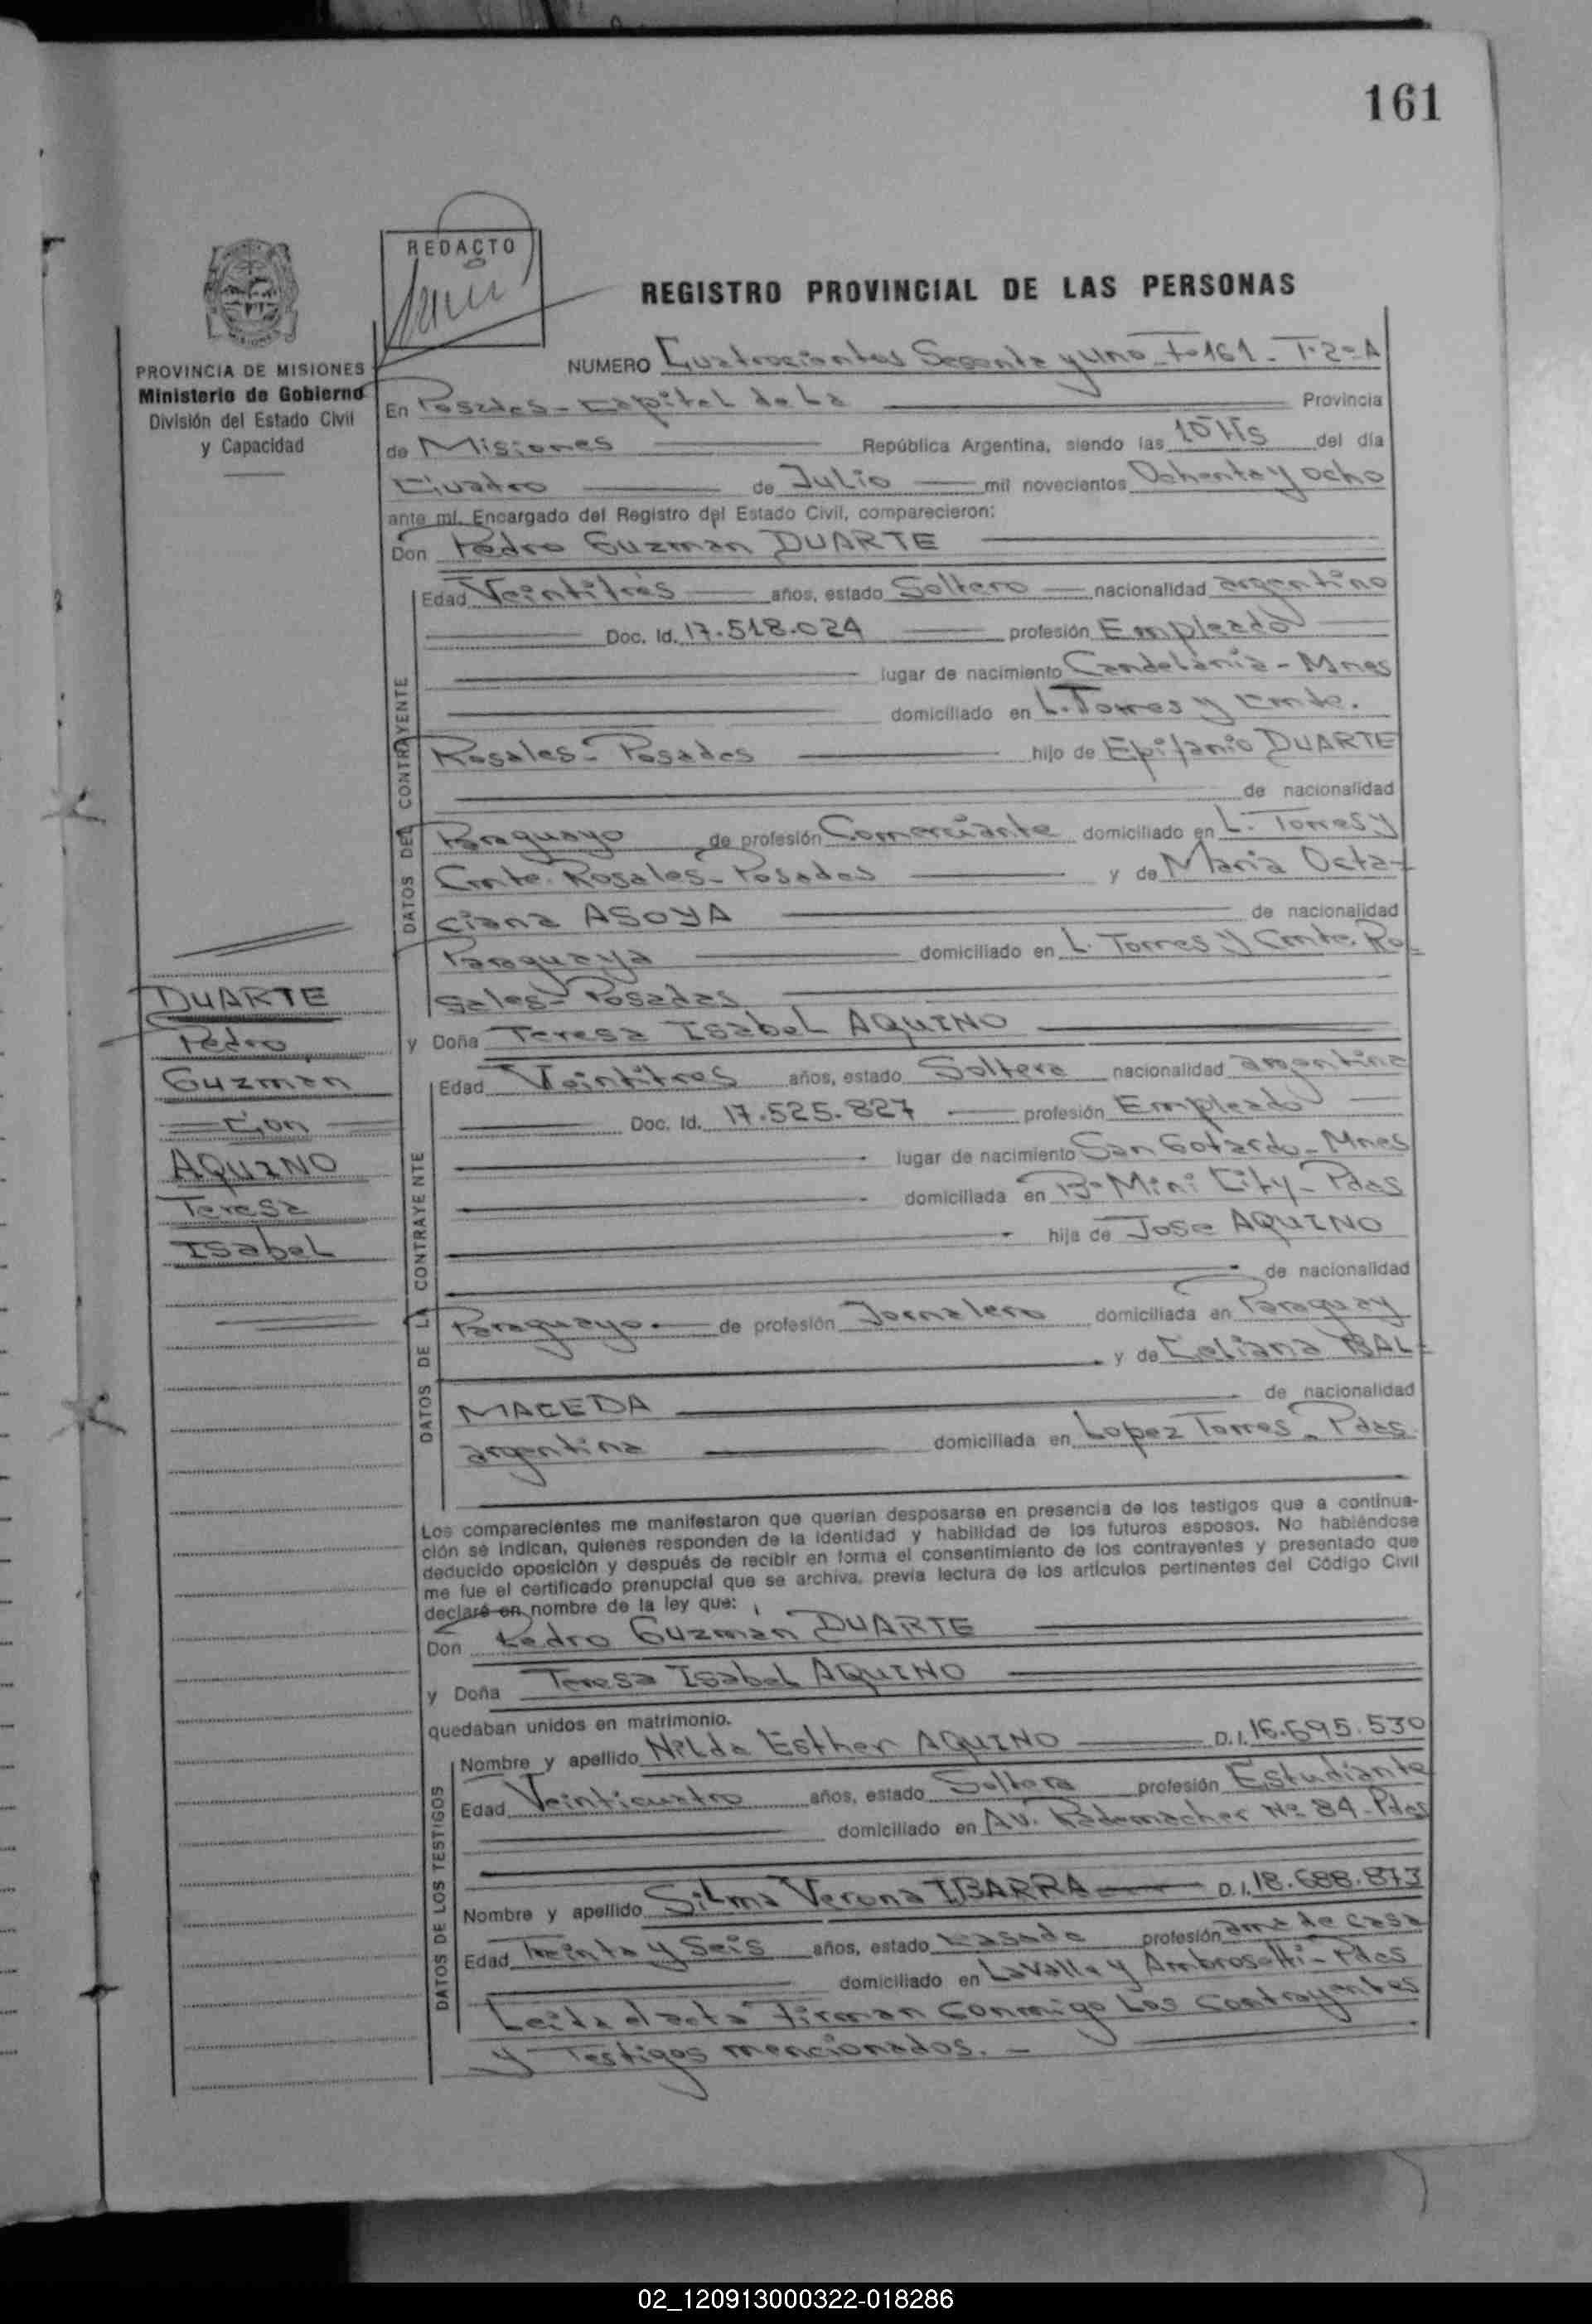 161
REDACTO
REGISTRO PROVINCIAL DE LAS PERSONAS
PROVINCIA DE MISIONES
Ministerio de Gobierno
División del Estado Civil
y Capacidad
NUMERO Cuatrocientos Sesenta y Uno - Fº 161 - Tº 2º A
En Posadas - Capital de La Provincia
de Misiones República Argentina, siendo las 10 Hs del día
Cuatro de Julio mil novecientos Ochenta y ocho
ante mí, Encargado del Registro del Estado Civil, comparecieron:
Don Pedro Guzmán DUARTE
DATOS DEL CONTRAYENTE
Edad Veintitrés años, estado Soltero nacionalidad argentino
Doc. Id. 17.518.024 profesión Empleado
lugar de nacimiento Candelaria - Mnes
domiciliado en L. Torres y Cmte.
Rosales - Posadas hijo de Epifanio DUARTE
de nacionalidad
Paraguayo de profesión Comerciante domiciliado en L. Torres y
Cmte. Rosales - Posadas y de Maria Octa-
ciana ASOYA de nacionalidad
Paraguaya domiciliado en L. Torres y Cmte. Ro-
sales - Posadas
y Doña Teresa Isabel AQUINO
DATOS DE LA CONTRAYENTE
Edad Veintitres años, estado Soltera nacionalidad argentina
Doc. Id. 17.525.827 profesión Empleado
lugar de nacimiento San Gotardo - Mnes
domiciliada en Bº Mini City - Pdas
hija de Jose AQUINO
de nacionalidad
Paraguayo de profesión Jornalero domiciliada en Paraguay
y de Celiana BAL-
MACEDA de nacionalidad
argentina domiciliada en Lopez Torres - Pdas.
DUARTE
Pedro
Guzmán
Con
AQUINO
Teresa
Isabel
Los comparecientes me manifestaron que querían desposarse en presencia de los testigos que a continua-
ción se indican, quienes responden de la identidad y habilidad de los futuros esposos. No habiéndose
deducido oposición y después de recibir en forma el consentimiento de los contrayentes y presentado que
me fue el certificado prenupcial que se archiva, previa lectura de los artículos pertinentes del Código Civil
declaré en nombre de la ley que:
Don Pedro Guzmán DUARTE
y Doña Teresa Isabel AQUINO
quedaban unidos en matrimonio.
DATOS DE LOS TESTIGOS
Nombre y apellido Nilda Esther AQUINO D.I. 16.695.530
Edad Veinticuatro años, estado Soltera profesión Estudiante
domiciliado en Av. Rademacher Nº 84 - Pdas
Nombre y apellido Silma Verona IBARRA D.I. 18.688.873
Edad Treinta y Seis años, estado Casada profesión ama de casa
domiciliado en Lavalle y Ambrosetti - Pdas
Leida el acta Firman Conmigo Los Contrayentes
y Testigos mencionados. -
02_120913000322-018286